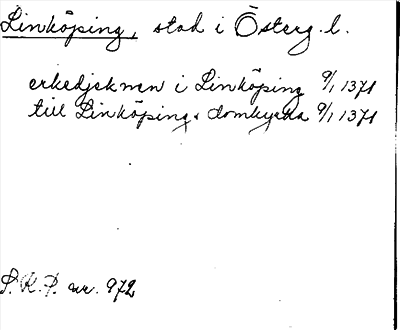 Linköping, stad i Österg. l.
erkedjeknen i Linköping 9/1 1371
till Linköpings domkyrka 9/1 1371
S.R.P. nr. 972